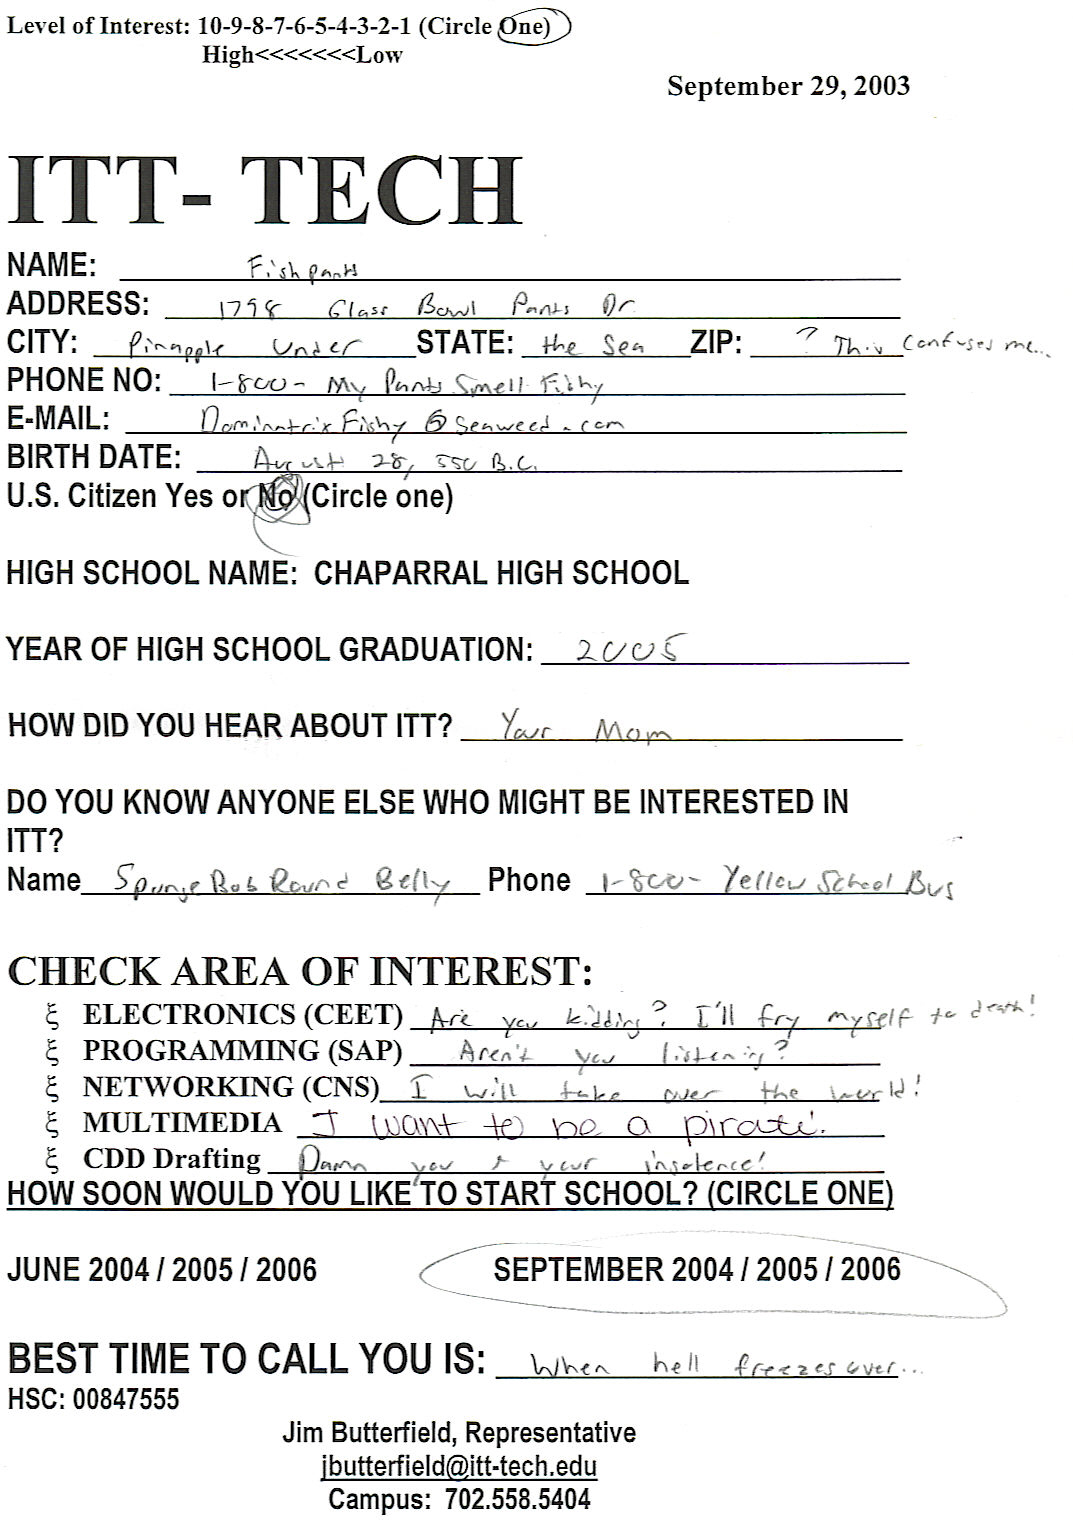 Level of Interest: 10-9-8-7-6-5-4-3-2-1 (Circle One)
High<<<<<<<Low
September 29, 2003
ITT- TECH
NAME: Fishpants
ADDRESS: 1798 Glass Bowl Pants Dr.
CITY: Pinapple Under STATE: the Sea ZIP: ? This confuses me...
PHONE NO: 1-800- My Pants Smell Fishy
E-MAIL: Dominatrix Fishy @ Seaweed.com
BIRTH DATE: August 28, 550 B.C.
U.S. Citizen Yes or No (Circle one)
HIGH SCHOOL NAME: CHAPARRAL HIGH SCHOOL
YEAR OF HIGH SCHOOL GRADUATION: 2005
HOW DID YOU HEAR ABOUT ITT? Your Mom
DO YOU KNOW ANYONE ELSE WHO MIGHT BE INTERESTED IN
ITT?
Name Spunge Bob Round Belly Phone 1-800- Yellow School Bus
CHECK AREA OF INTEREST:
ξ ELECTRONICS (CEET) Are you kidding? I'll fry myself to death!
ξ PROGRAMMING (SAP) Aren't you listening?
ξ NETWORKING (CNS) I will take over the world!
ξ MULTIMEDIA I want to be a pirate!
ξ CDD Drafting Damn you & your insolence!
HOW SOON WOULD YOU LIKE TO START SCHOOL? (CIRCLE ONE)
JUNE 2004 / 2005 / 2006 SEPTEMBER 2004 / 2005 / 2006
BEST TIME TO CALL YOU IS: When hell freezes over...
HSC: 00847555
Jim Butterfield, Representative
jbutterfield@itt-tech.edu
Campus: 702.558.5404